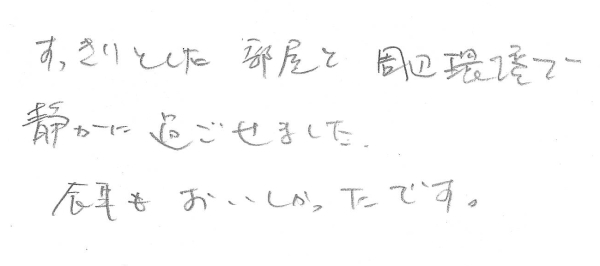 すっきりとした 部屋と 周辺環境で
静かに 過ごせました.
食事も おいしかったです。